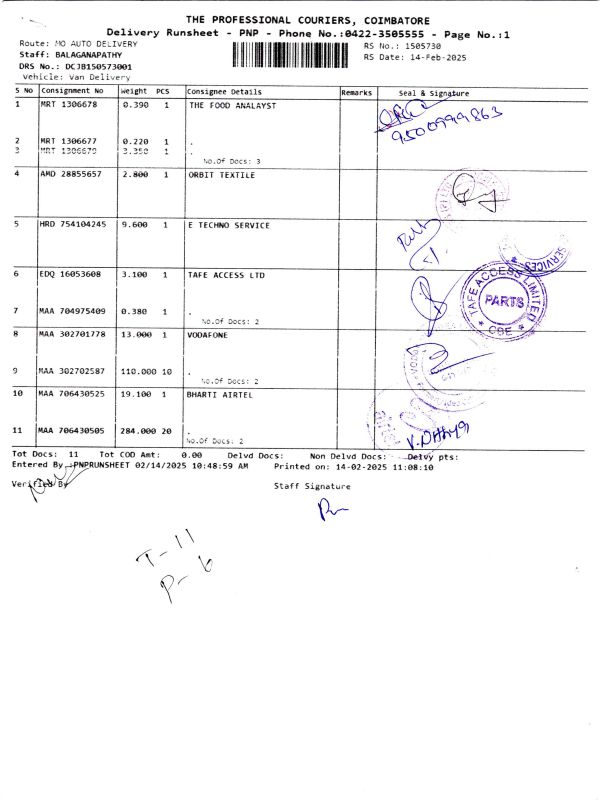 THE PROFESSIONAL COURIERS, COIMBATORE
Delivery Runsheet - PNP - Phone No.:0422-3505555 - Page No.:1
Route: MO AUTO DELIVERY RS No.: 1505730
Staff: BALAGANAPATHY RS Date: 14-Feb-2025
DRS No.: DCJB150573001
Vehicle: Van Delivery
S No Consignment No Weight PCS Consignee Details Remarks Seal & Signature
1 MRT 1306678 0.390 1 THE FOOD ANALAYST
9500999863
2 MRT 1306677 0.220 1 .
3 MRT 1306679 3.350 1 .
No.Of Docs: 3
4 AMD 28855657 2.800 1 ORBIT TEXTILE
5 HRD 754104245 9.600 1 E TECHNO SERVICE
SERVICES
6 EDQ 16053608 3.100 1 TAFE ACCESS LTD
TAFE ACCESS LIMITED
PARTS
* CBE *
7 MAA 704975409 0.380 1 .
No.Of Docs: 2
8 MAA 302701778 13.000 1 VODAFONE
9 MAA 302702587 110.000 10 .
No.Of Docs: 2
10 MAA 706430525 19.100 1 BHARTI AIRTEL
11 MAA 706430505 284.000 20 .
No.Of Docs: 2
Tot Docs: 11 Tot COD Amt: 0.00 Delvd Docs: Non Delvd Docs: Delvy pts:
Entered By :PNPRUNSHEET 02/14/2025 10:48:59 AM Printed on: 14-02-2025 11:08:10
Verified By Staff Signature
T-11
P-6